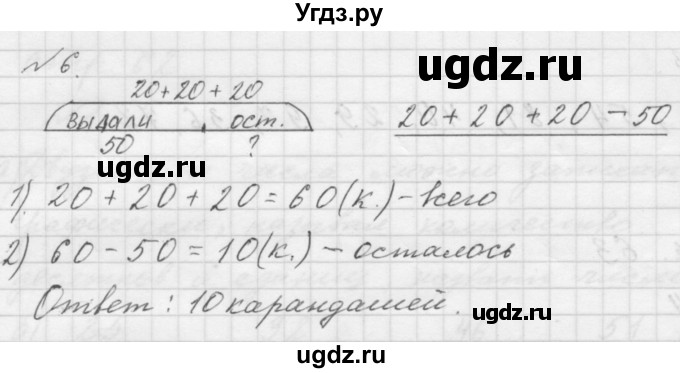 Угдз.ру
№ 6.
ugdz.ru
20+20+20
выдали ост.
50 ?
20 + 20 + 20 - 50
1) 20 + 20 + 20 = 60 (к.) - всего
2) 60 - 50 = 10 (к.) - осталось
Ответ: 10 карандашей.
ugdz.ru
ugdz.ru